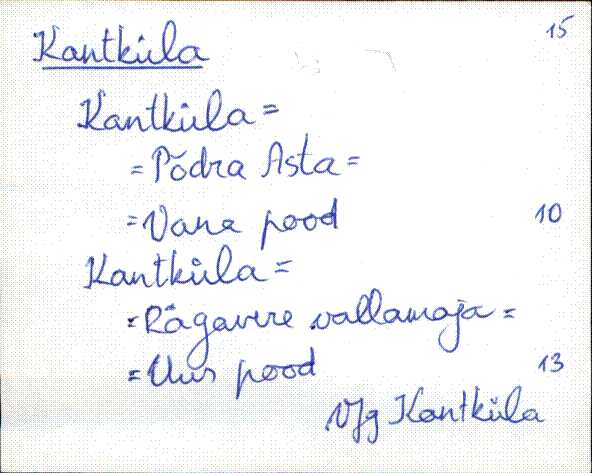 15
Kantküla
Kantküla =
= Põdra Asta =
= Vana pood 10
Kantküla =
= Rägavere vallamaja =
= Uus pood 13
Vjg Kantküla